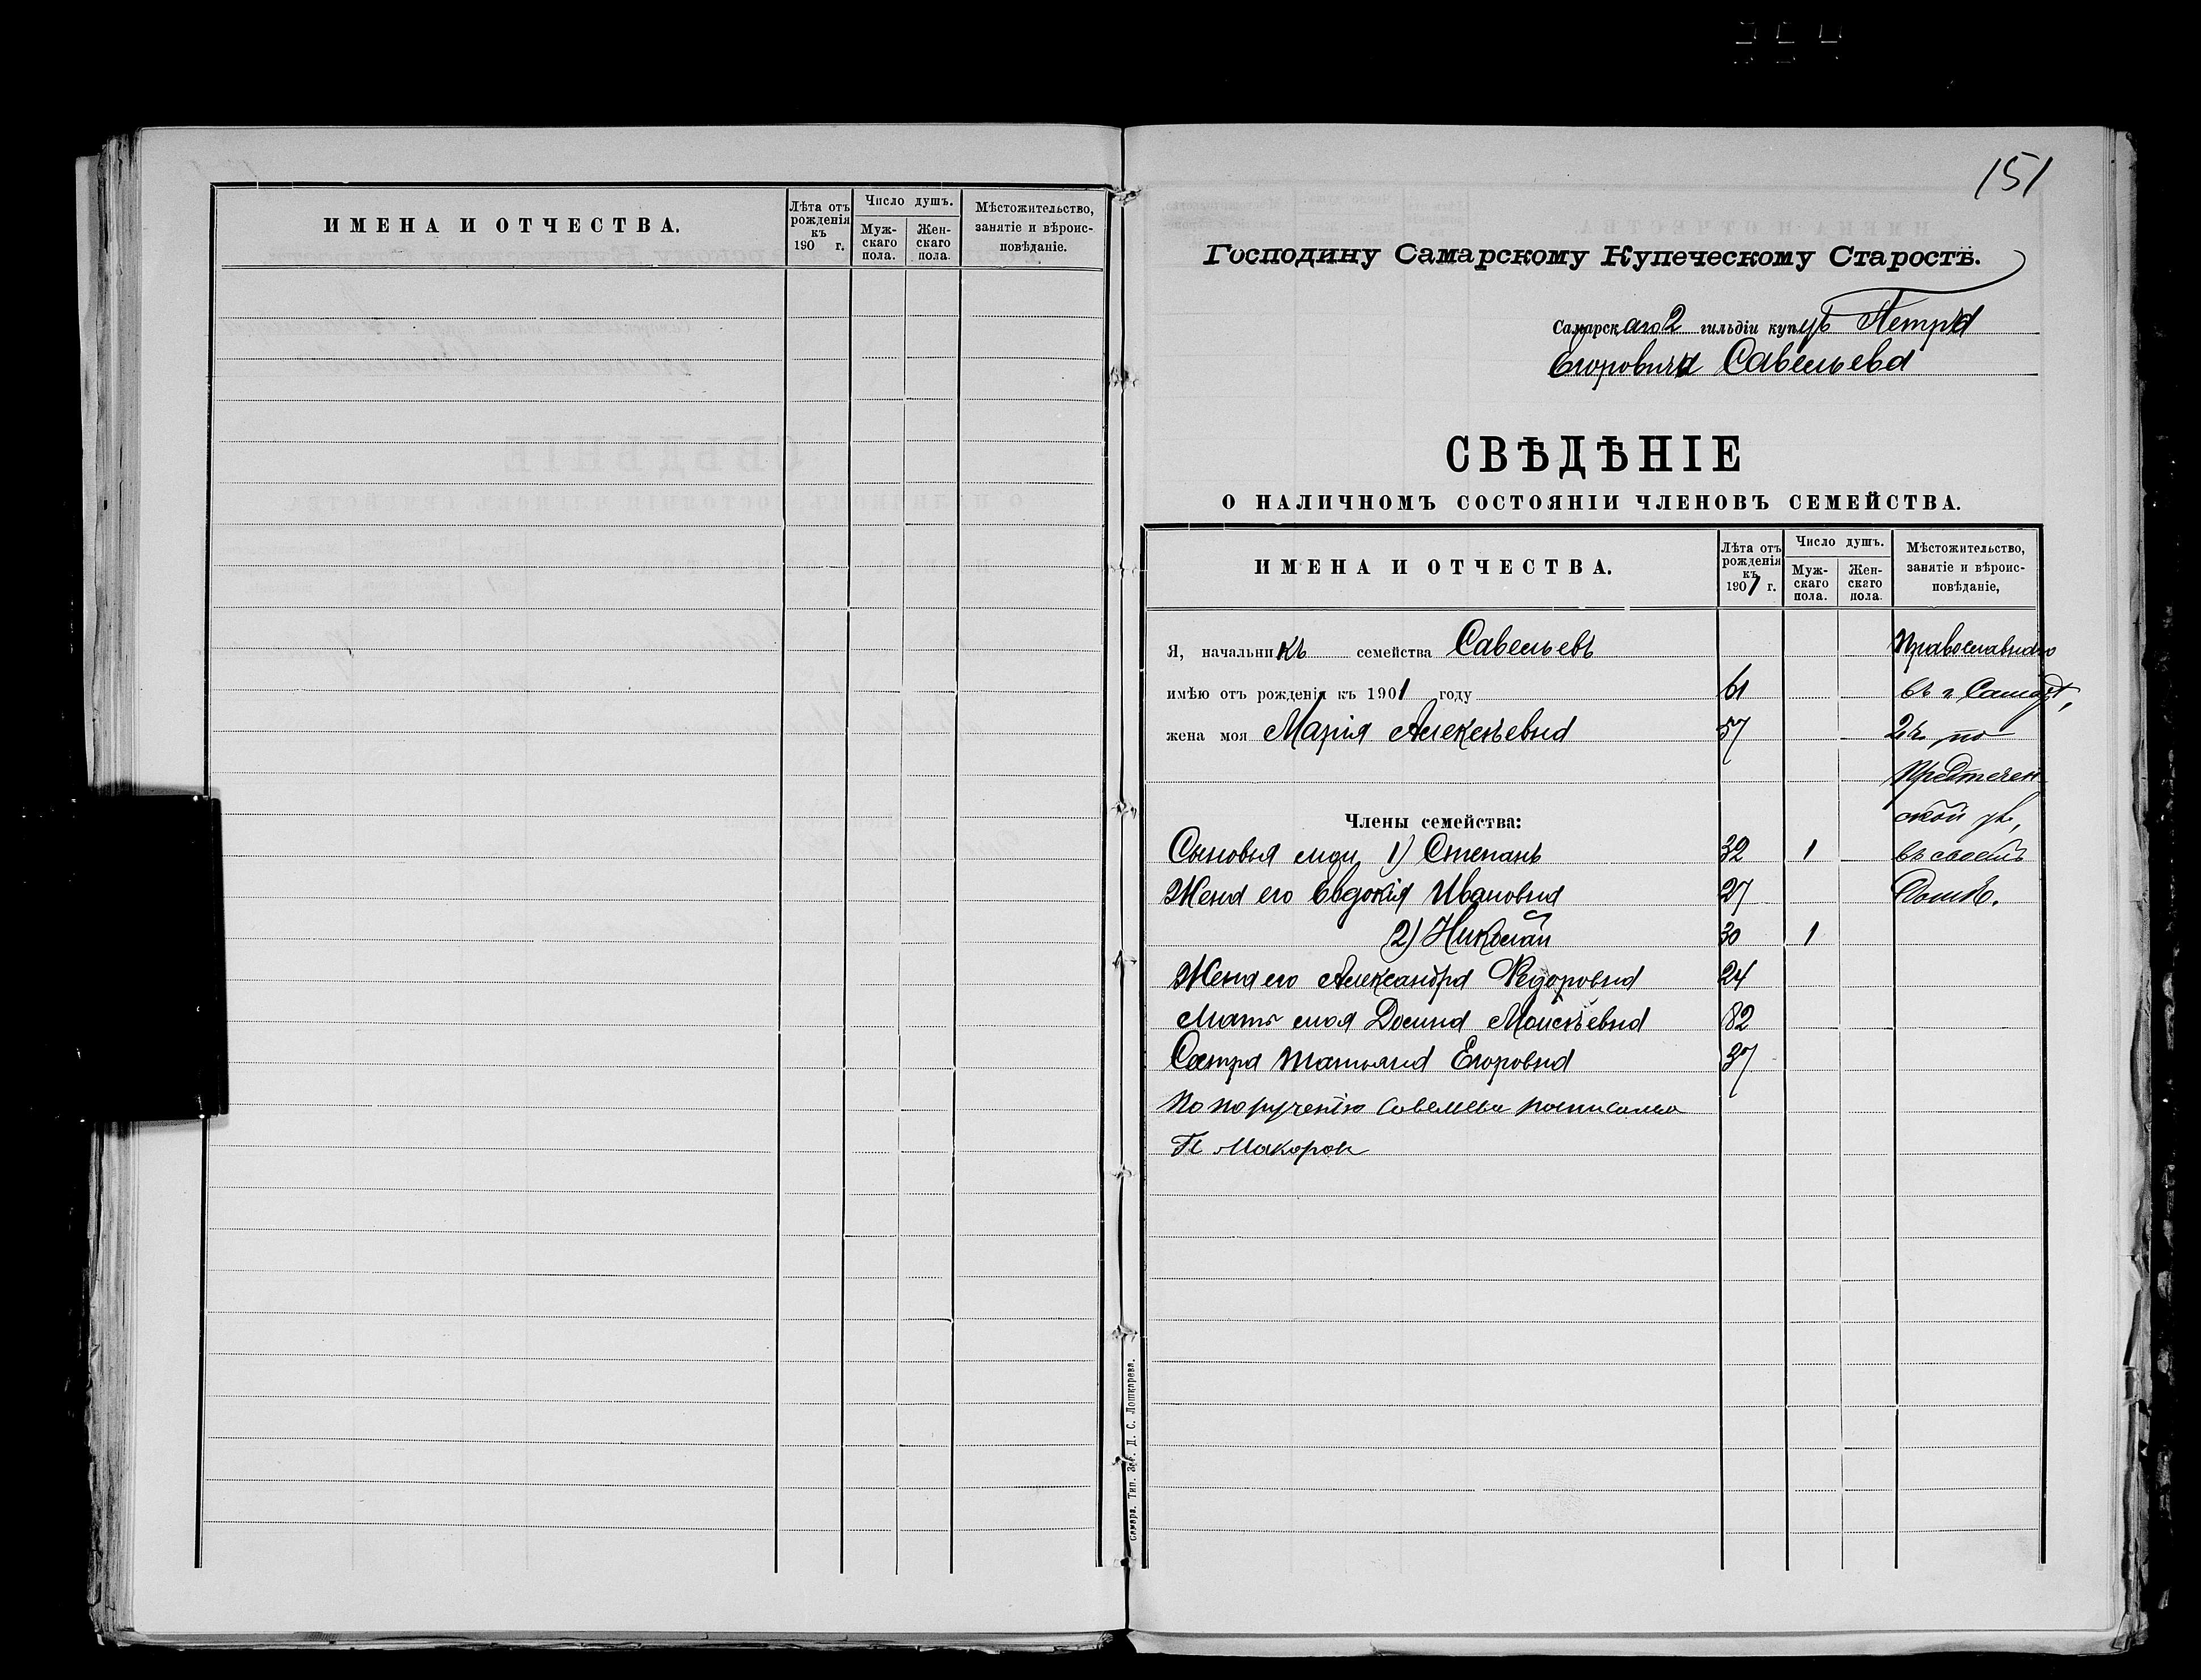 ИМЕНА И ОТЧЕСТВА.
Лѣта отъ рожденія къ 190 г.
Число душъ.
Муж-скаго пола.
Жен-скаго пола.
Мѣстожительство, занятіе и вѣроис-повѣданіе.
151
Господину Самарскому Купеческому Старостѣ.
Самарскаго 2 гильдіи купца Петра
Егоровича Савельева
СВѢДѢНІЕ
О НАЛИЧНОМЪ СОСТОЯНІИ ЧЛЕНОВЪ СЕМЕЙСТВА.
ИМЕНА И ОТЧЕСТВА.
Лѣта отъ рожденія къ 1901 г.
Число душъ.
Муж-скаго пола.
Жен-скаго пола.
Мѣстожительство, занятіе и вѣроис-повѣданіе,
Я, начальникъ семейства Савельевъ
имѣю отъ рожденія къ 1901 году 61 въ г. Самарѣ,
жена моя Марія Алексѣевна 57
Предтечен
Члены семейства: ской ул.,
Сыновья мои, 1) Степанъ 32 1 въ своемъ
Жена его Евдокія Ивановна 27 домѣ.
2) Николай 30 1
Жена его Александра Федоровна 24
Мать моя Домна Моисѣевна 82
Сестра Татьяна Егоровна 37
По порученію Савельева росписался
П Макаров
Самара. Тип. Д. С. Лошкарева.